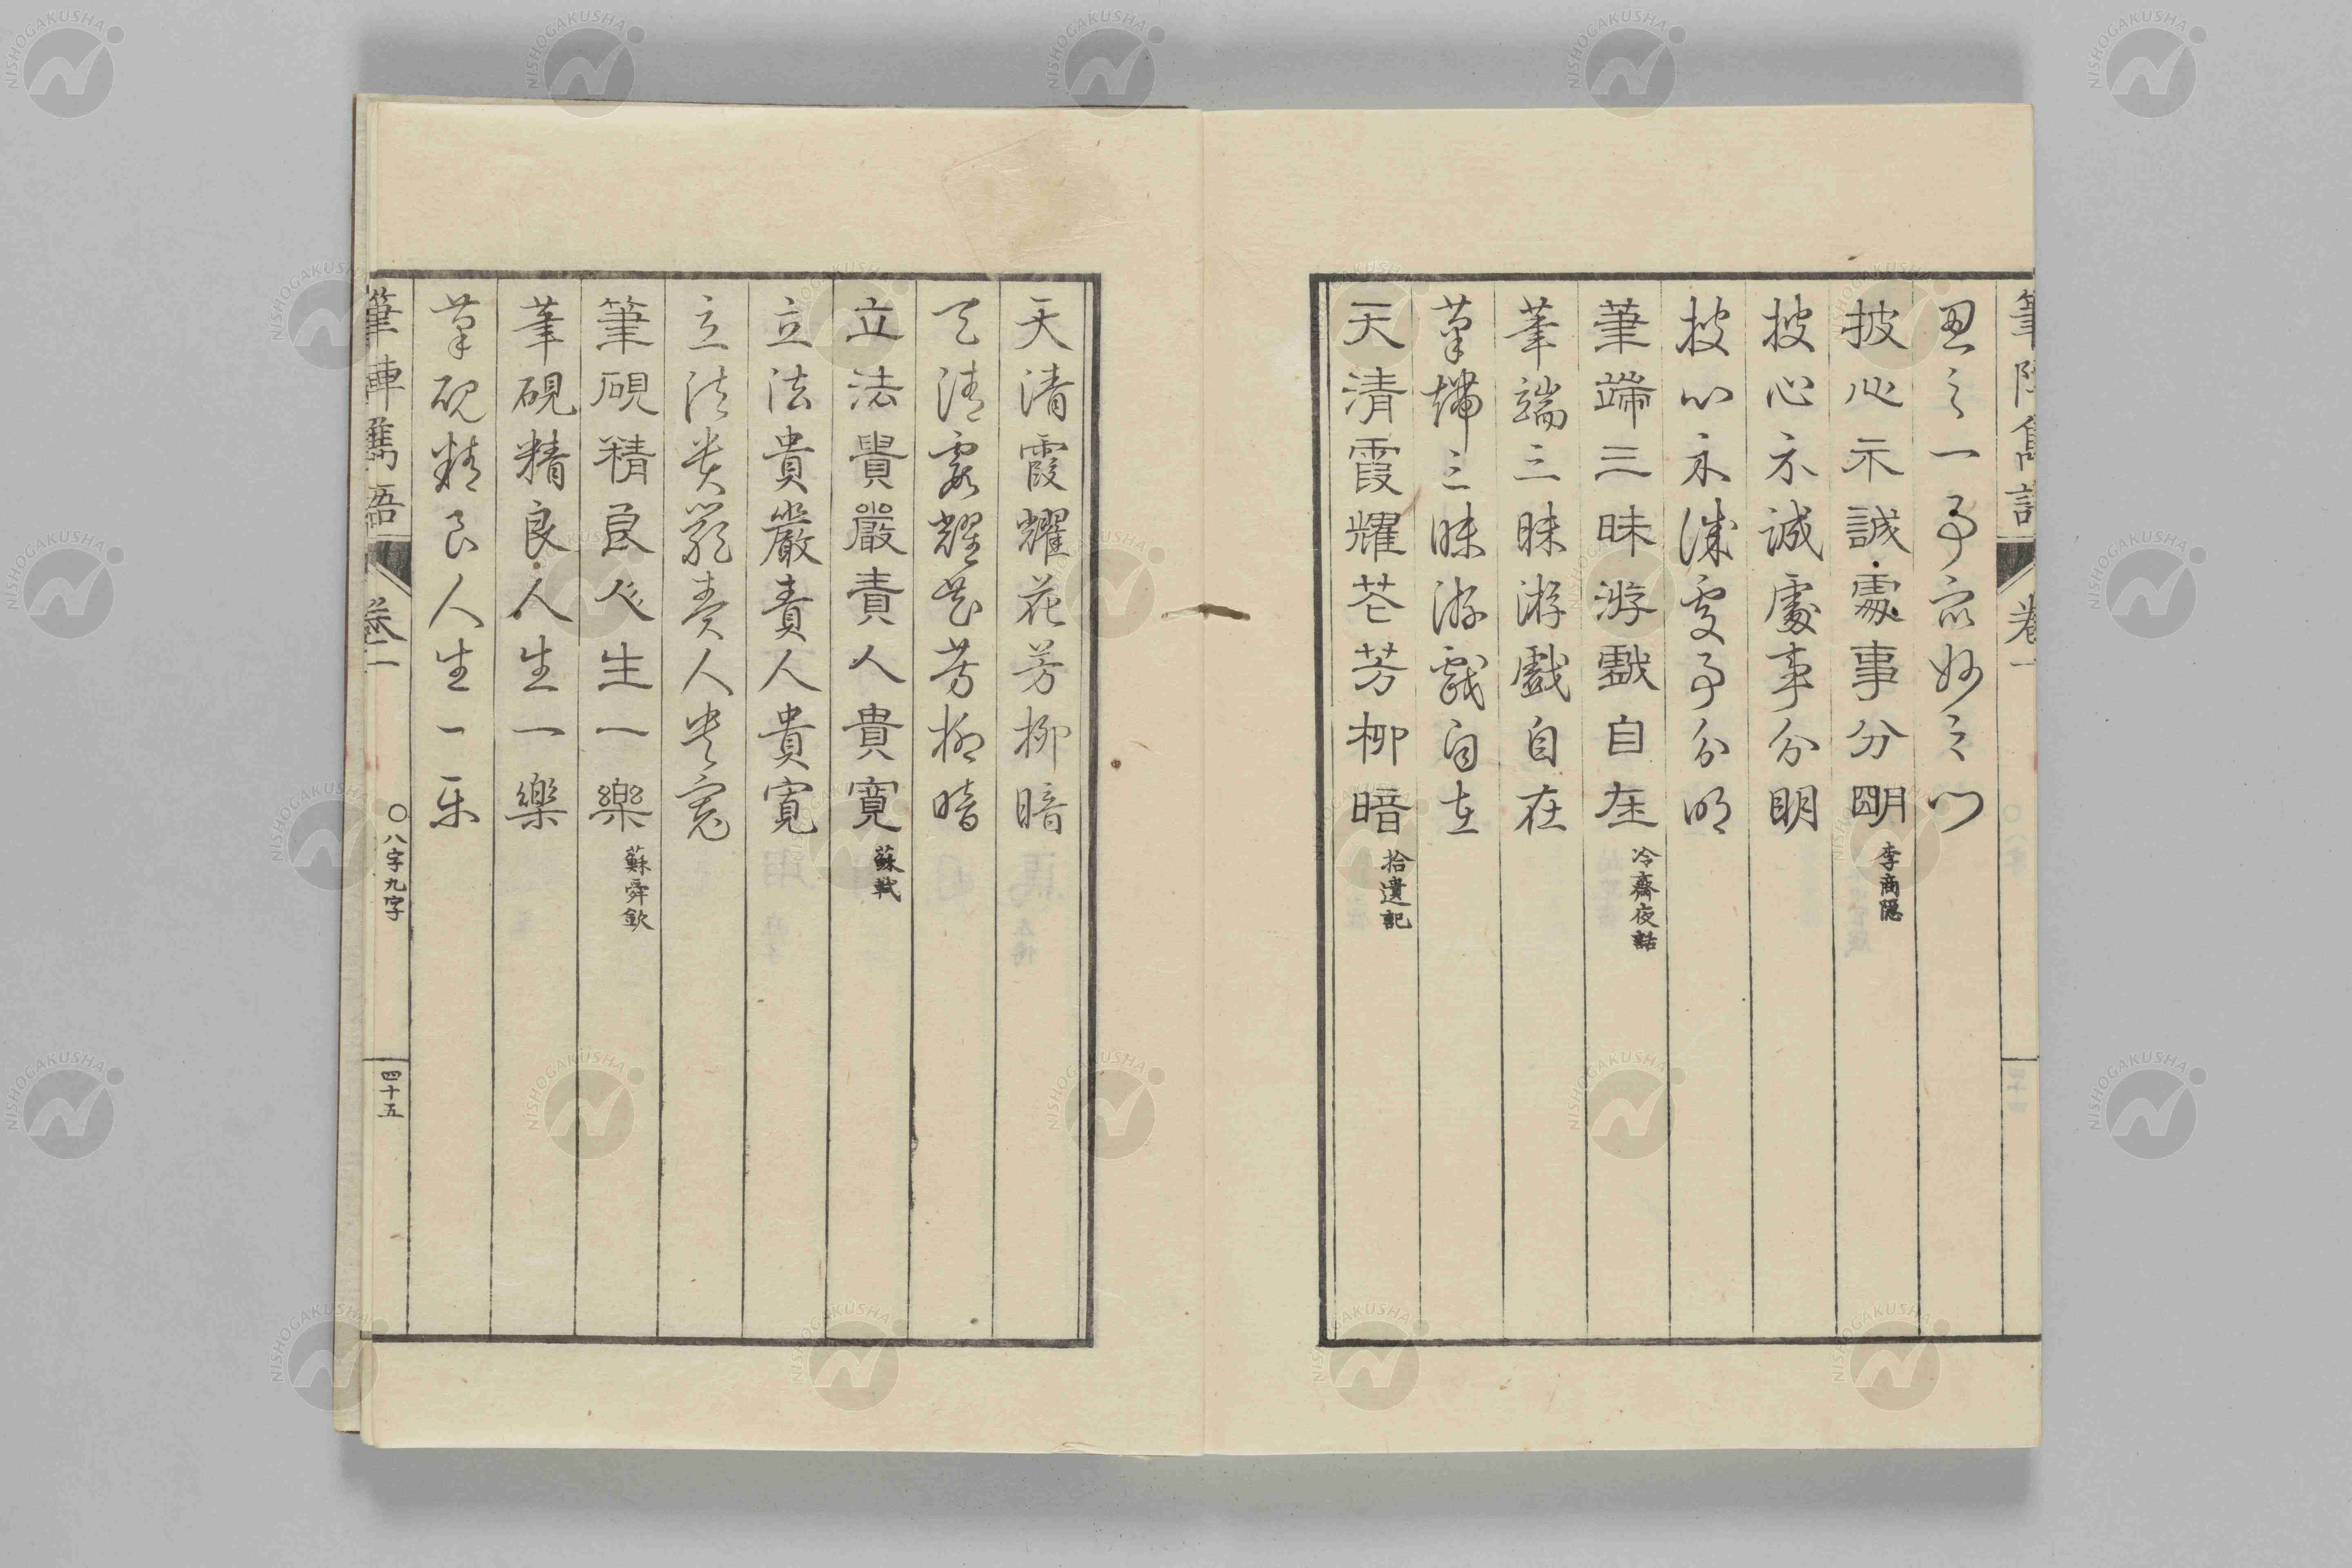 筆陣雋語 卷二
思之一字衆妙之門
披心示誠處事分明 李商隱
披心示誠處事分明
披心示誠處事分明
筆端三昧游戲自在 冷齋夜話
筆端三昧游戲自在
筆端三昧游戲自在
天清霞耀花芳柳暗 拾遺記
天清霞耀花芳柳暗
天清霞耀花芳柳暗
立法貴嚴責人貴寬 蘇軾
立法貴嚴責人貴寬
立法貴嚴責人貴寬
筆硯精良人生一樂 蘇舜欽
筆硯精良人生一樂
筆硯精良人生一樂
筆陣雋語 卷二 ○八字九字 四十五